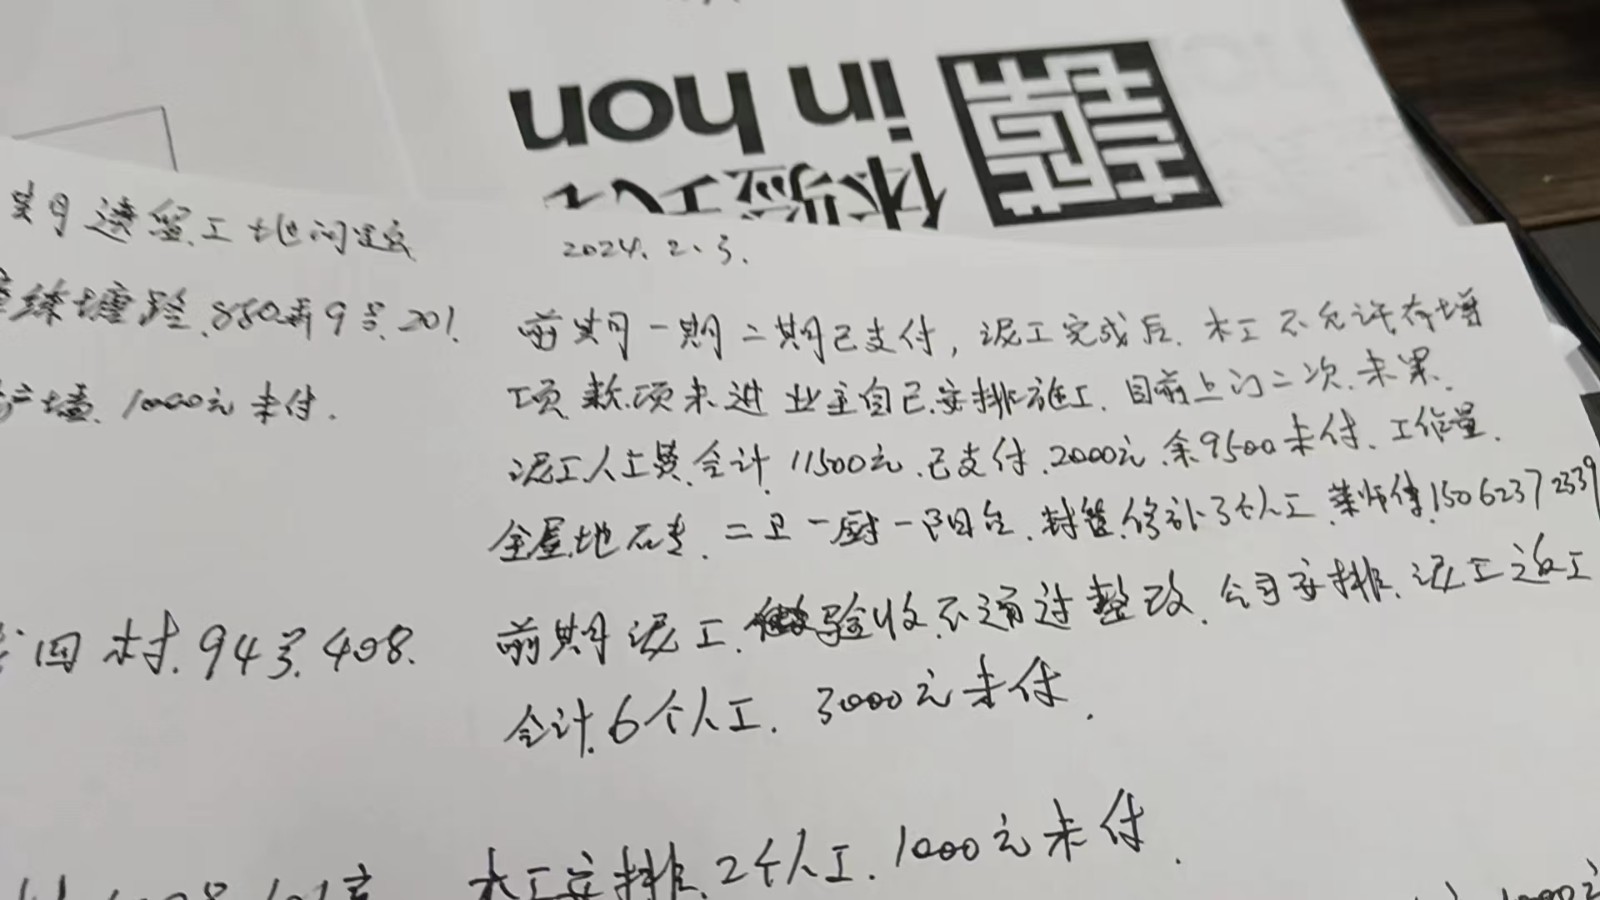 in hon
体验
2024.2.3.
期遗留工地问题
练塘路.880弄9号.201.
前期一期二期已支付，泥工完成后.木工不允许有增
墙.1000元未付.
项.款项未进业主自己安排施工.目前上门二次.未果.
泥工人工费合计.11500元.已支付.2000元.余9500未付.工作量.
全屋地砖.二卫一厨一阳台.封管.修补3个人工.师傅.15062372339
四村.94号.408.
前期泥工.验收不通过整改.公司安排.泥工返工
合计.6个人工.3000元未付.
木工安排.2个人工.1000元未付.